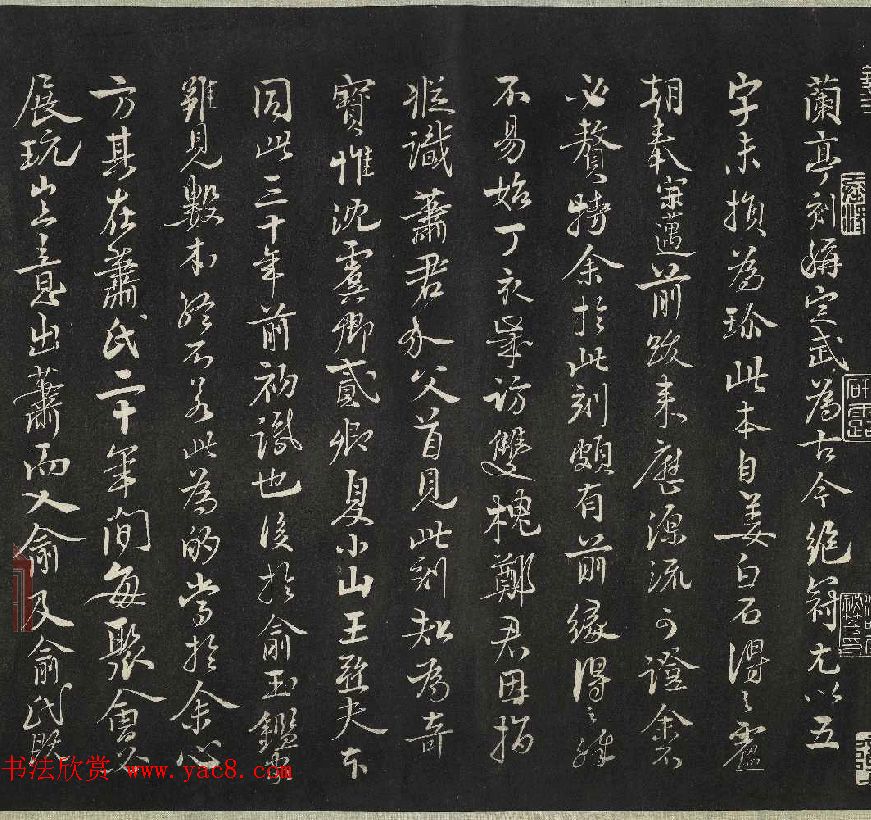 蘭亭刻稱定武為古今絕冠尤以五
字未損為珍此本自姜白石得之盧
朝奉宗邁前跋來歷源流可證余不
必贅特余於此刻頗有前緣得之殊
不易始丁亥歲訪雙槐鄭君因指
從識蕭君外父首見此刻知為奇
寶惟沈虞卿貳卿夏小山王夫本
因此三十年前初識也後於俞玉鑑家
雖見數本終不若此為的當於余心
方其在蕭氏二十年間每聚會必
展玩豈意出蕭而入俞及俞氏既
书法欣赏 www.yac8.com